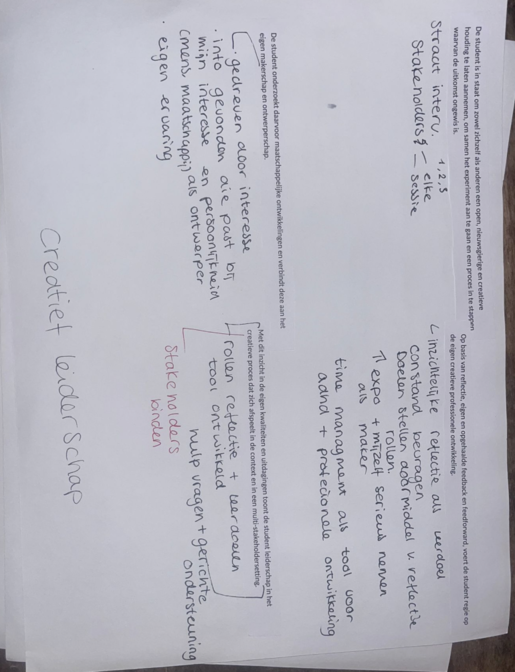 De student is in staat om zowel zichzelf als anderen een open, nieuwsgierige en creatieve
houding te laten aannemen, om samen het experiment aan te gaan en een proces in te stappen
waarvan de uitkomst ongewis is.
Straat interv. 1,2,3
Stakeholders } – elke
sessie
Op basis van reflectie, eigen en opgehaalde feedback en feedforward, voert de student regie op
de eigen creatieve professionele ontwikkeling.
inzichtelijke reflectie als leerdoel
constand bevragen
Doelen stellen doormiddel v reflectie
rollen
expo + mijzelf serieus nemen
als maker
time managment als tool voor
adhd + profecionele ontwikkeling
De student onderzoekt daarvoor maatschappelijke ontwikkelingen en verbindt deze aan het
eigen makerschap en ontwerpenschap.
. gedreven door interesse
. into gevonden die past bij
mijn interesse en persoonlijkheid
(mens maatschappij) als ontwerper
. eigen ervaring
Met dit inzicht in de eigen kwaliteiten en uitdagingen toont de student leiderschap in het
creatieve proces dat zich afspeelt in de context en in een multi-stakeholdersetting.
rollen reflectie + leerdoelen
tool ontwikkeld
hulp vragen + gerichte
ondersteuning
stakeholders
binden
Creatief leiderschap